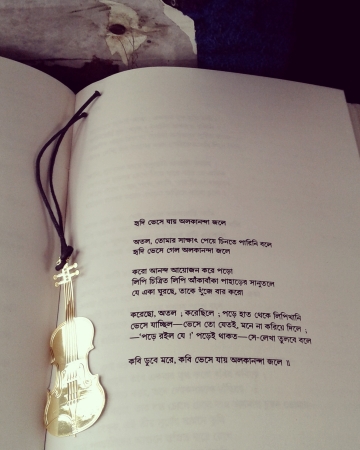 হৃদি ভেসে যায় অলকানন্দা জলে
অতল, তোমার সাক্ষাৎ পেয়ে চিনতে পারিনি বলে
হৃদি ভেসে গেল অলকানন্দা জলে
করো আনন্দ আয়োজন করে পড়ো
লিপি চিত্রিত লিপি আঁকাবাঁকা পাহাড়ের সানুতলে
যে একা ঘুরছে, তাকে খুঁজে বার করো
করেছো, অতল ; করেছিলে ; পড়ে হাত থেকে লিপিখানি
ভেসে যাচ্ছিল—ভেসে তো যেতই, মনে না করিয়ে দিলে ;
—‘পড়ে রইল যে !’ পড়েই থাকত—সে-লেখা তুলবে বলে
কবি ডুবে মরে, কবি ভেসে যায় অলকানন্দা জলে ॥